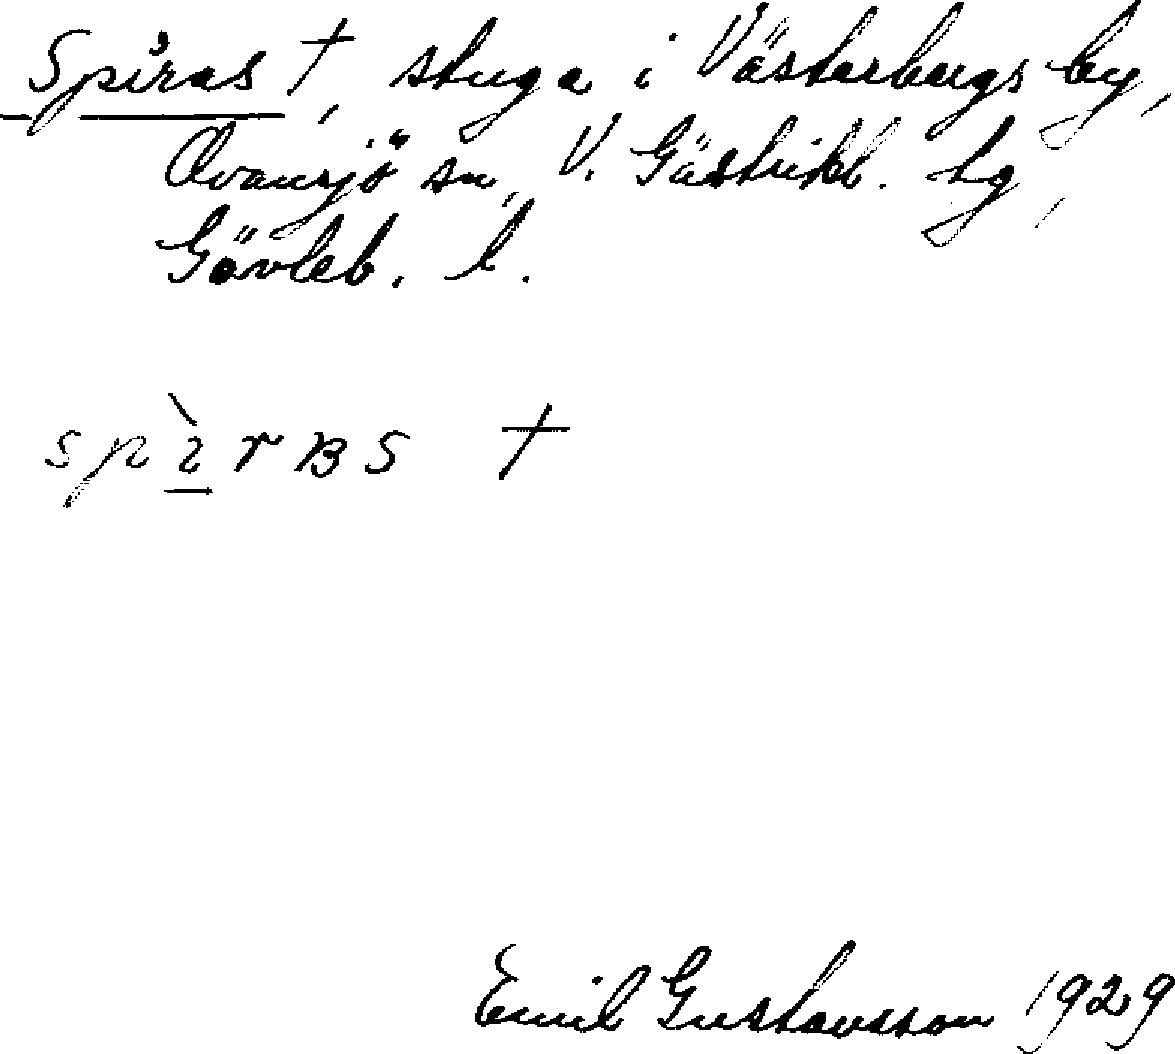 Spiras †, stuga i Västerbergs by,
Ovansjö sn, V. Gästrikl. tg,
Gävleb. l.
spìrʙs †
Emil Gustavsson 1929